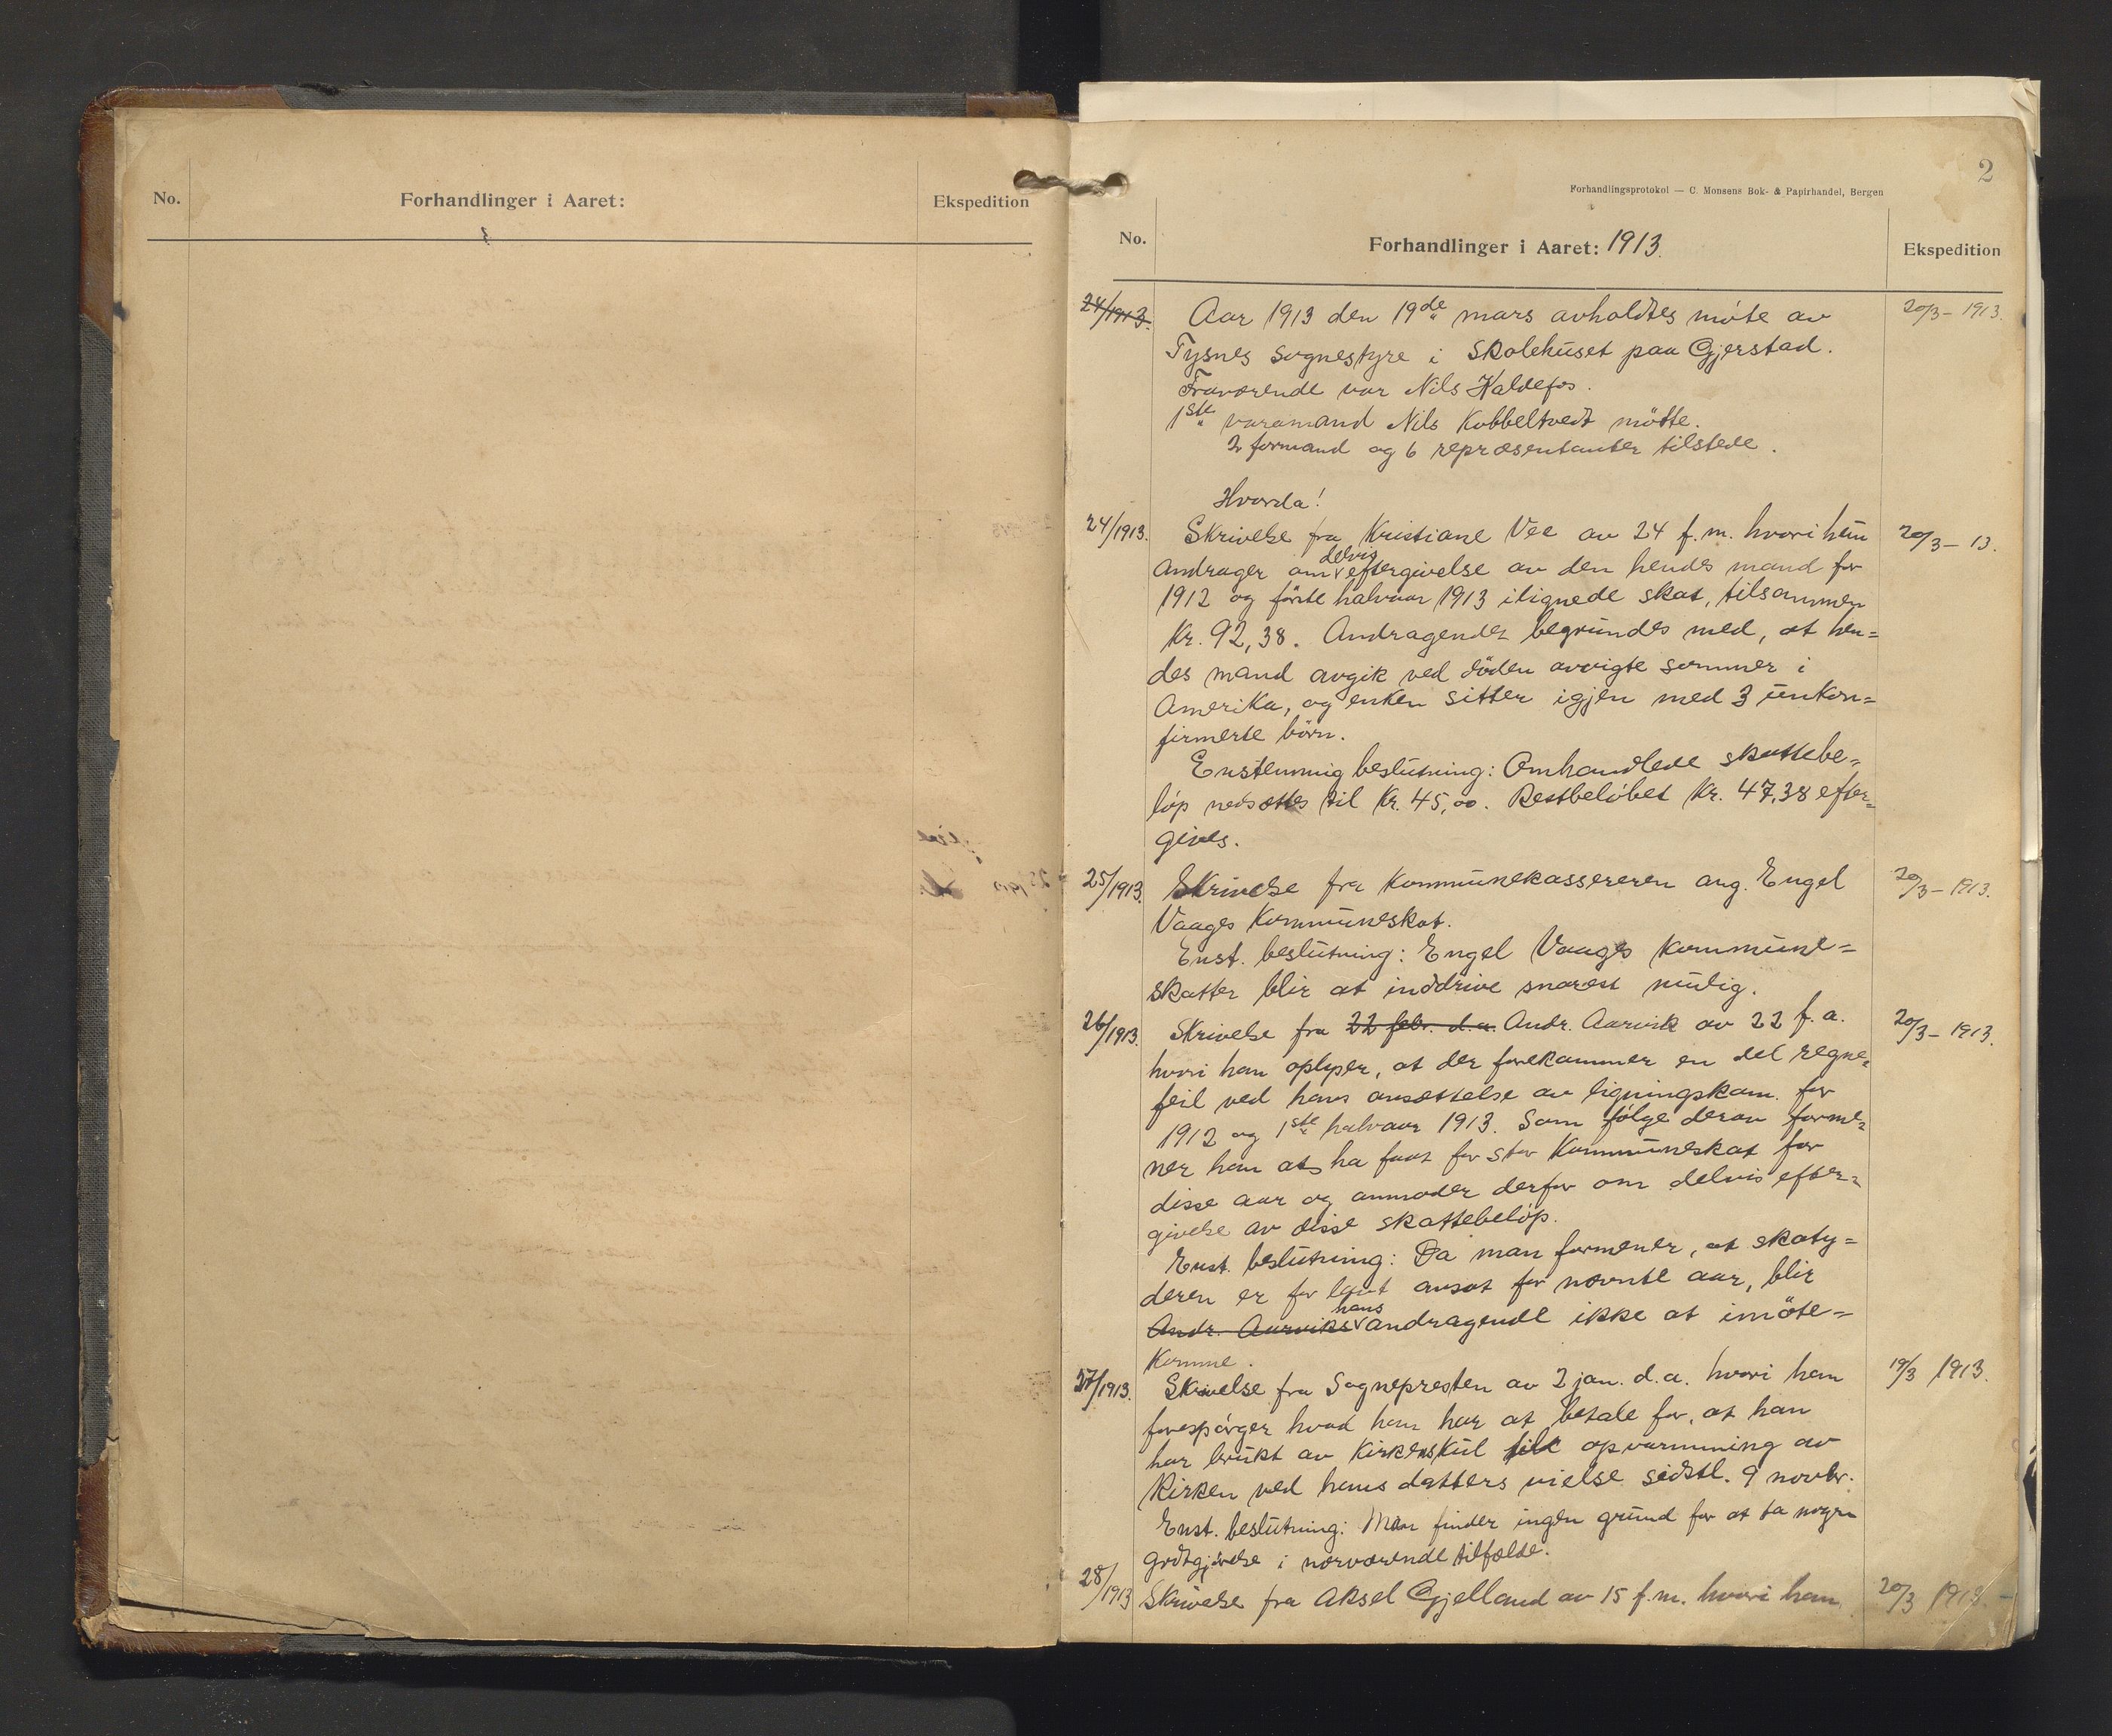 No.
Forhandlinger i Aaret:
Ekspedition
2
Forhandlingsprotokol — C. Monsens Bok- & Papirhandel, Bergen
No.
Forhandlinger i Aaret: 1913.
Ekspedition
24/1913. Aar 1913 den 19de mars avholdtes møte av 20/3 – 1913.
Tysnes sognestyre i Skolehuset paa Gjerstad.
Fraværende var Nils Haldefos.
1ste varamand Nils Kobbeltvedt møtte.
formand og 6 repræsentanter tilstede.
Hvorda!
24/1913. Skrivelse fra Kristiane Vee av 24 f.m. hvori hun 20/3 – 13.
andrager om delvis eftergivelse av den hendes mand for
1912 og første halvaar 1913 ilignede skat, tilsammen
Kr. 92,38. Andragendet begrundes med, at hen=
des mand avgik ved døden avvigte sommer i
Amerika, og enken sitter igjen med 3 unkon=
firmerte børn.
Enstemmig beslutning: Omhandlede skattebe=
løp nedsættes til Kr. 45,00. Restbeløbet Kr. 47,38 efter=
gives.
25/1913. Skrivelse fra Kommunekassereren ang. Engel 20/3 – 1913.
Vaages Kommuneskat.
Enst. beslutning: Engel Vaages Kommune=
skatter blir at inddrive snarest mulig.
26/1913. Skrivelse fra 22 febr. d.a. Andr. Aarvik av 22 f.a. 20/3 – 1913.
hvori han oplyser, at der forekommer en del regne=
feil ved hans ansættelse av ligningskom. for
1912 og 1ste halvaar 1913. Som følge derav forme=
ner han at ha faat for stor Kommuneskat for
disse aar og anmoder derfor om delvis efter=
givelse av disse skattebeløp.
Enst. beslutning: Da man formener, at skaty=
deren er for lavt ansat for nævnte aar, blir
Andr. Aarviks hans andragende ikke at imøte=
komme.
27/1913. Skrivelse fra Sognepresten av 2 jan. d.a. hvori han 19/3 1913.
forespørger hvad han har at betale for, at han
har brukt av Kirkens kul til opvarmning av
Kirken ved hans datters vielse sidstl. 9 novbr.
Enst. beslutning: Man finder ingen grund for at ta nogen
godtgjørelse i nærværende tilfælde.
28/1913 Skrivelse fra Aksel Gjelland av 15 f.m. hvori han 20/3 1913.